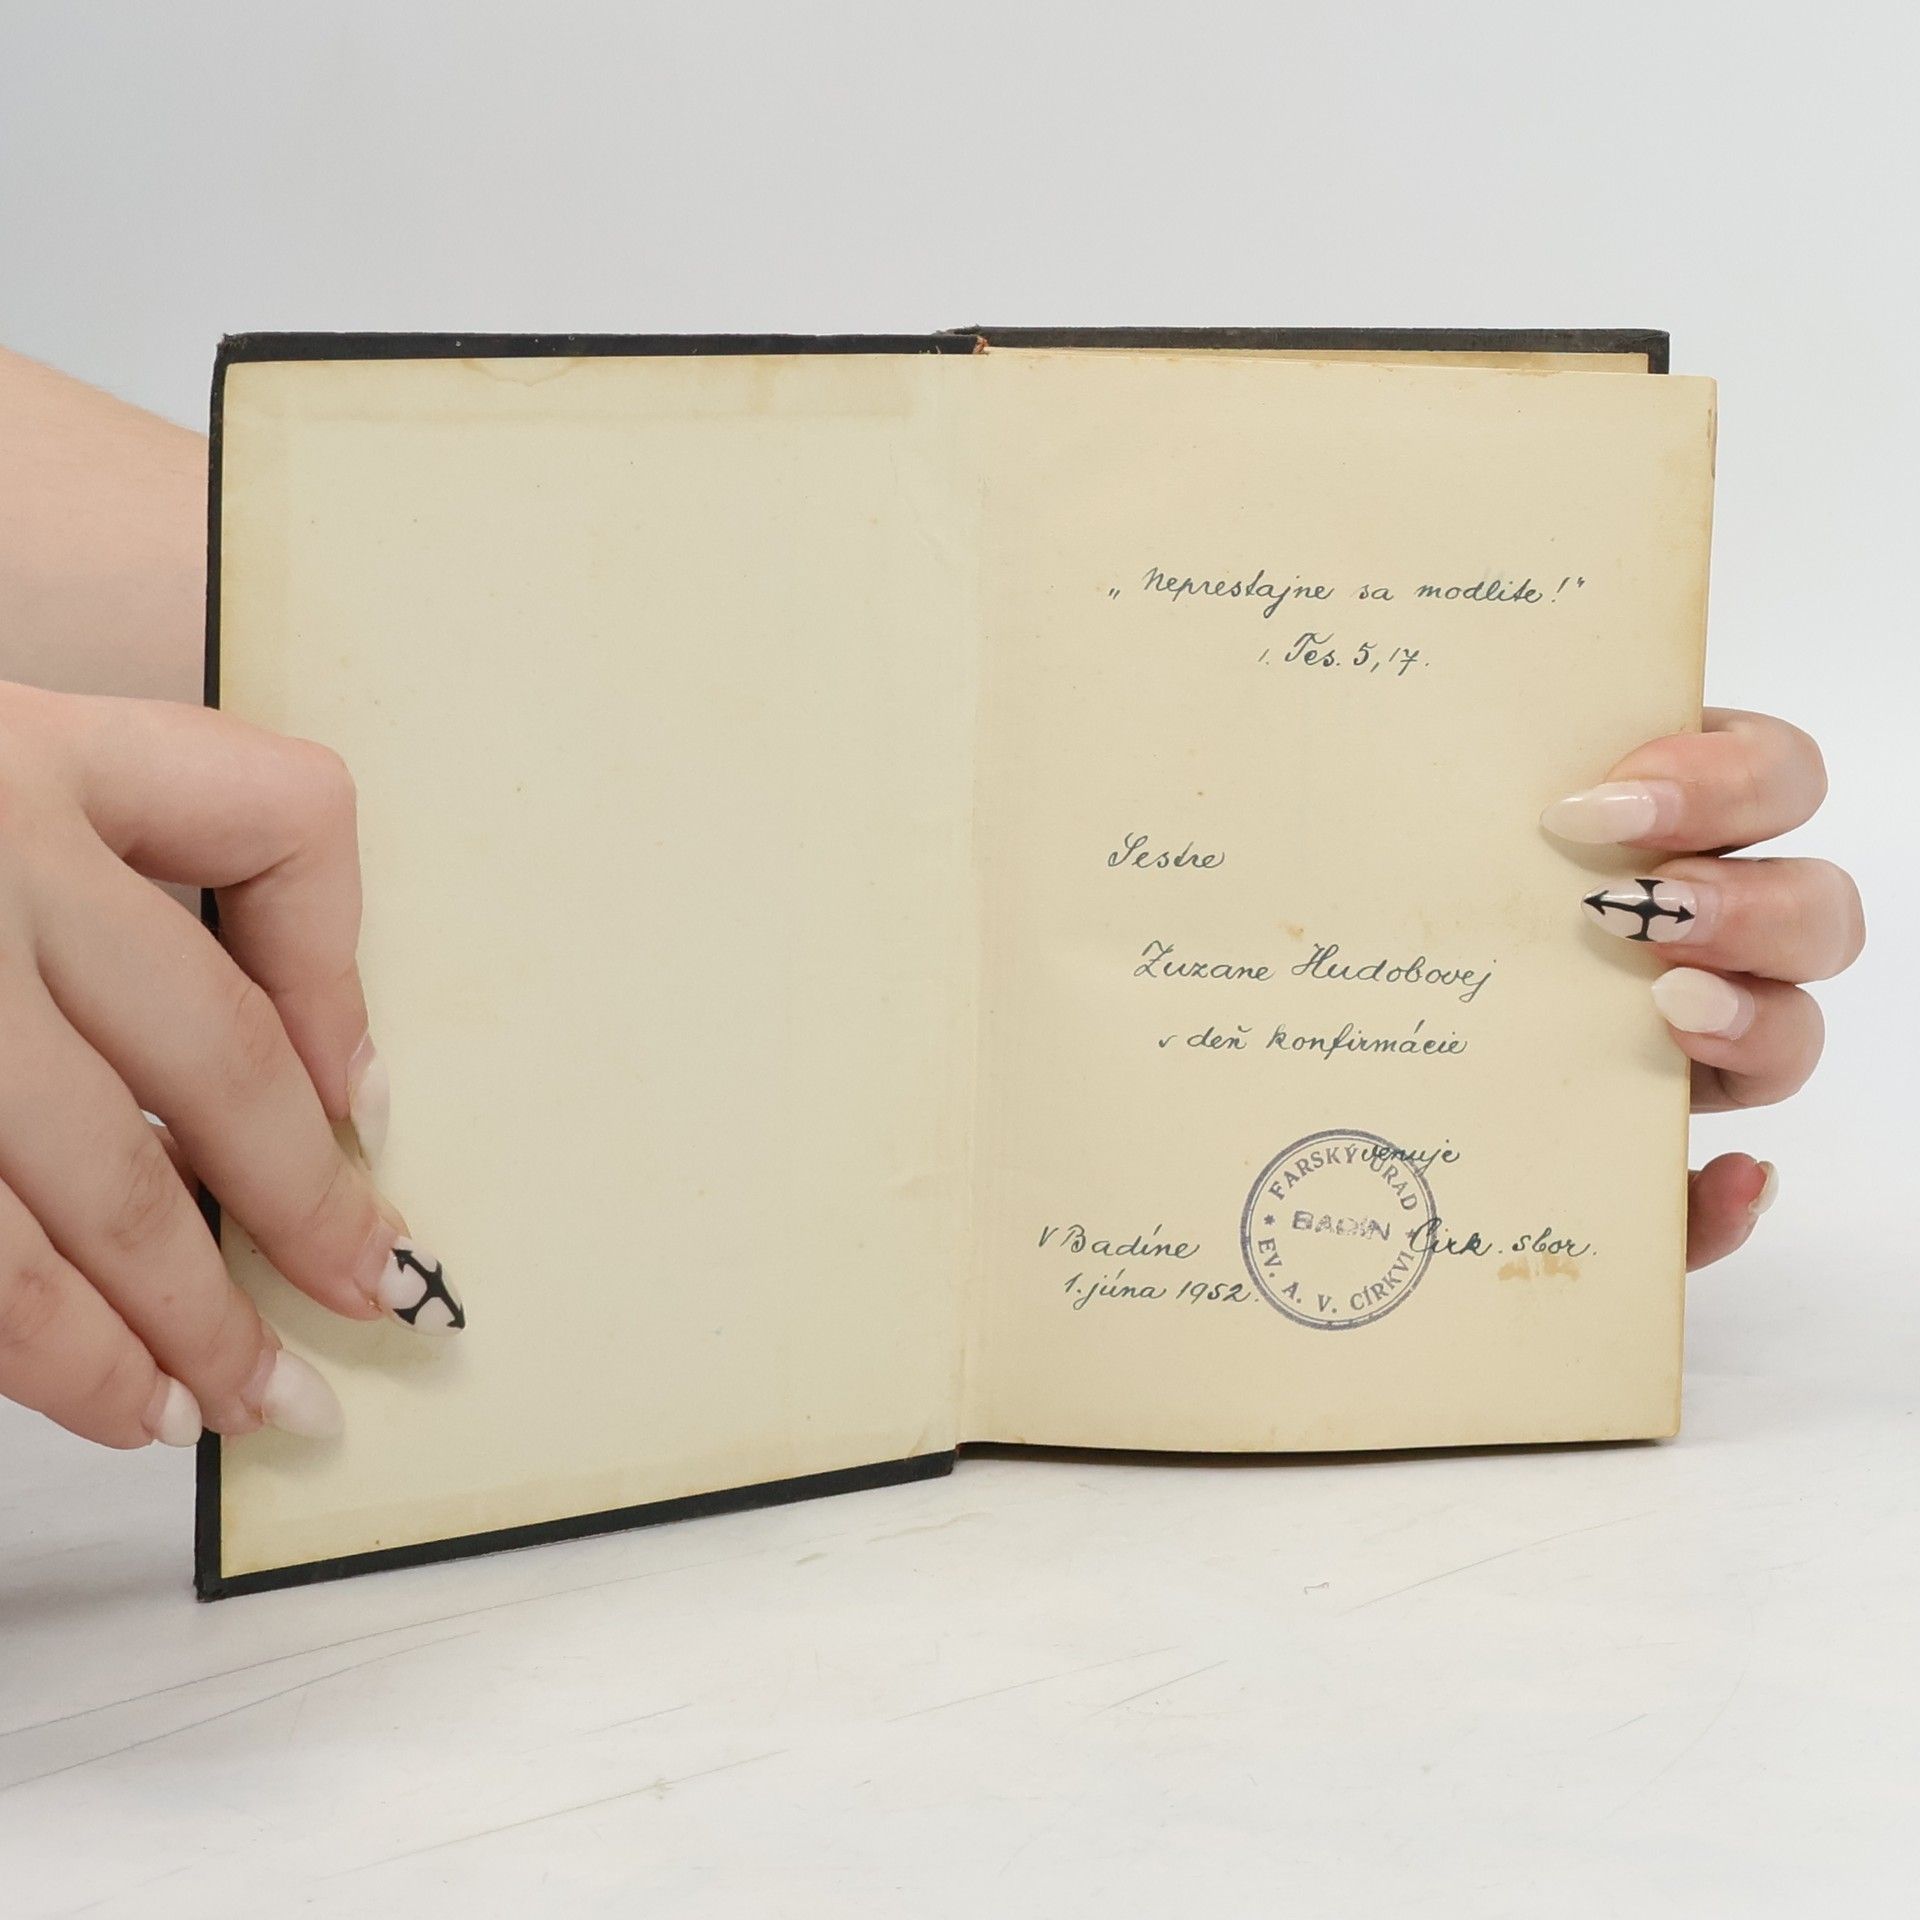 „Neprestajne sa modlite!"
1. Tes. 5, 17.
Sestre
Zuzane Hudobovej
v deň konfirmácie
venuje
V Badíne
Cirk. sbor.
1. júna 1952.
FARSKÝ ÚRAD
BADÍN
EV. A. V. CÍRKVI